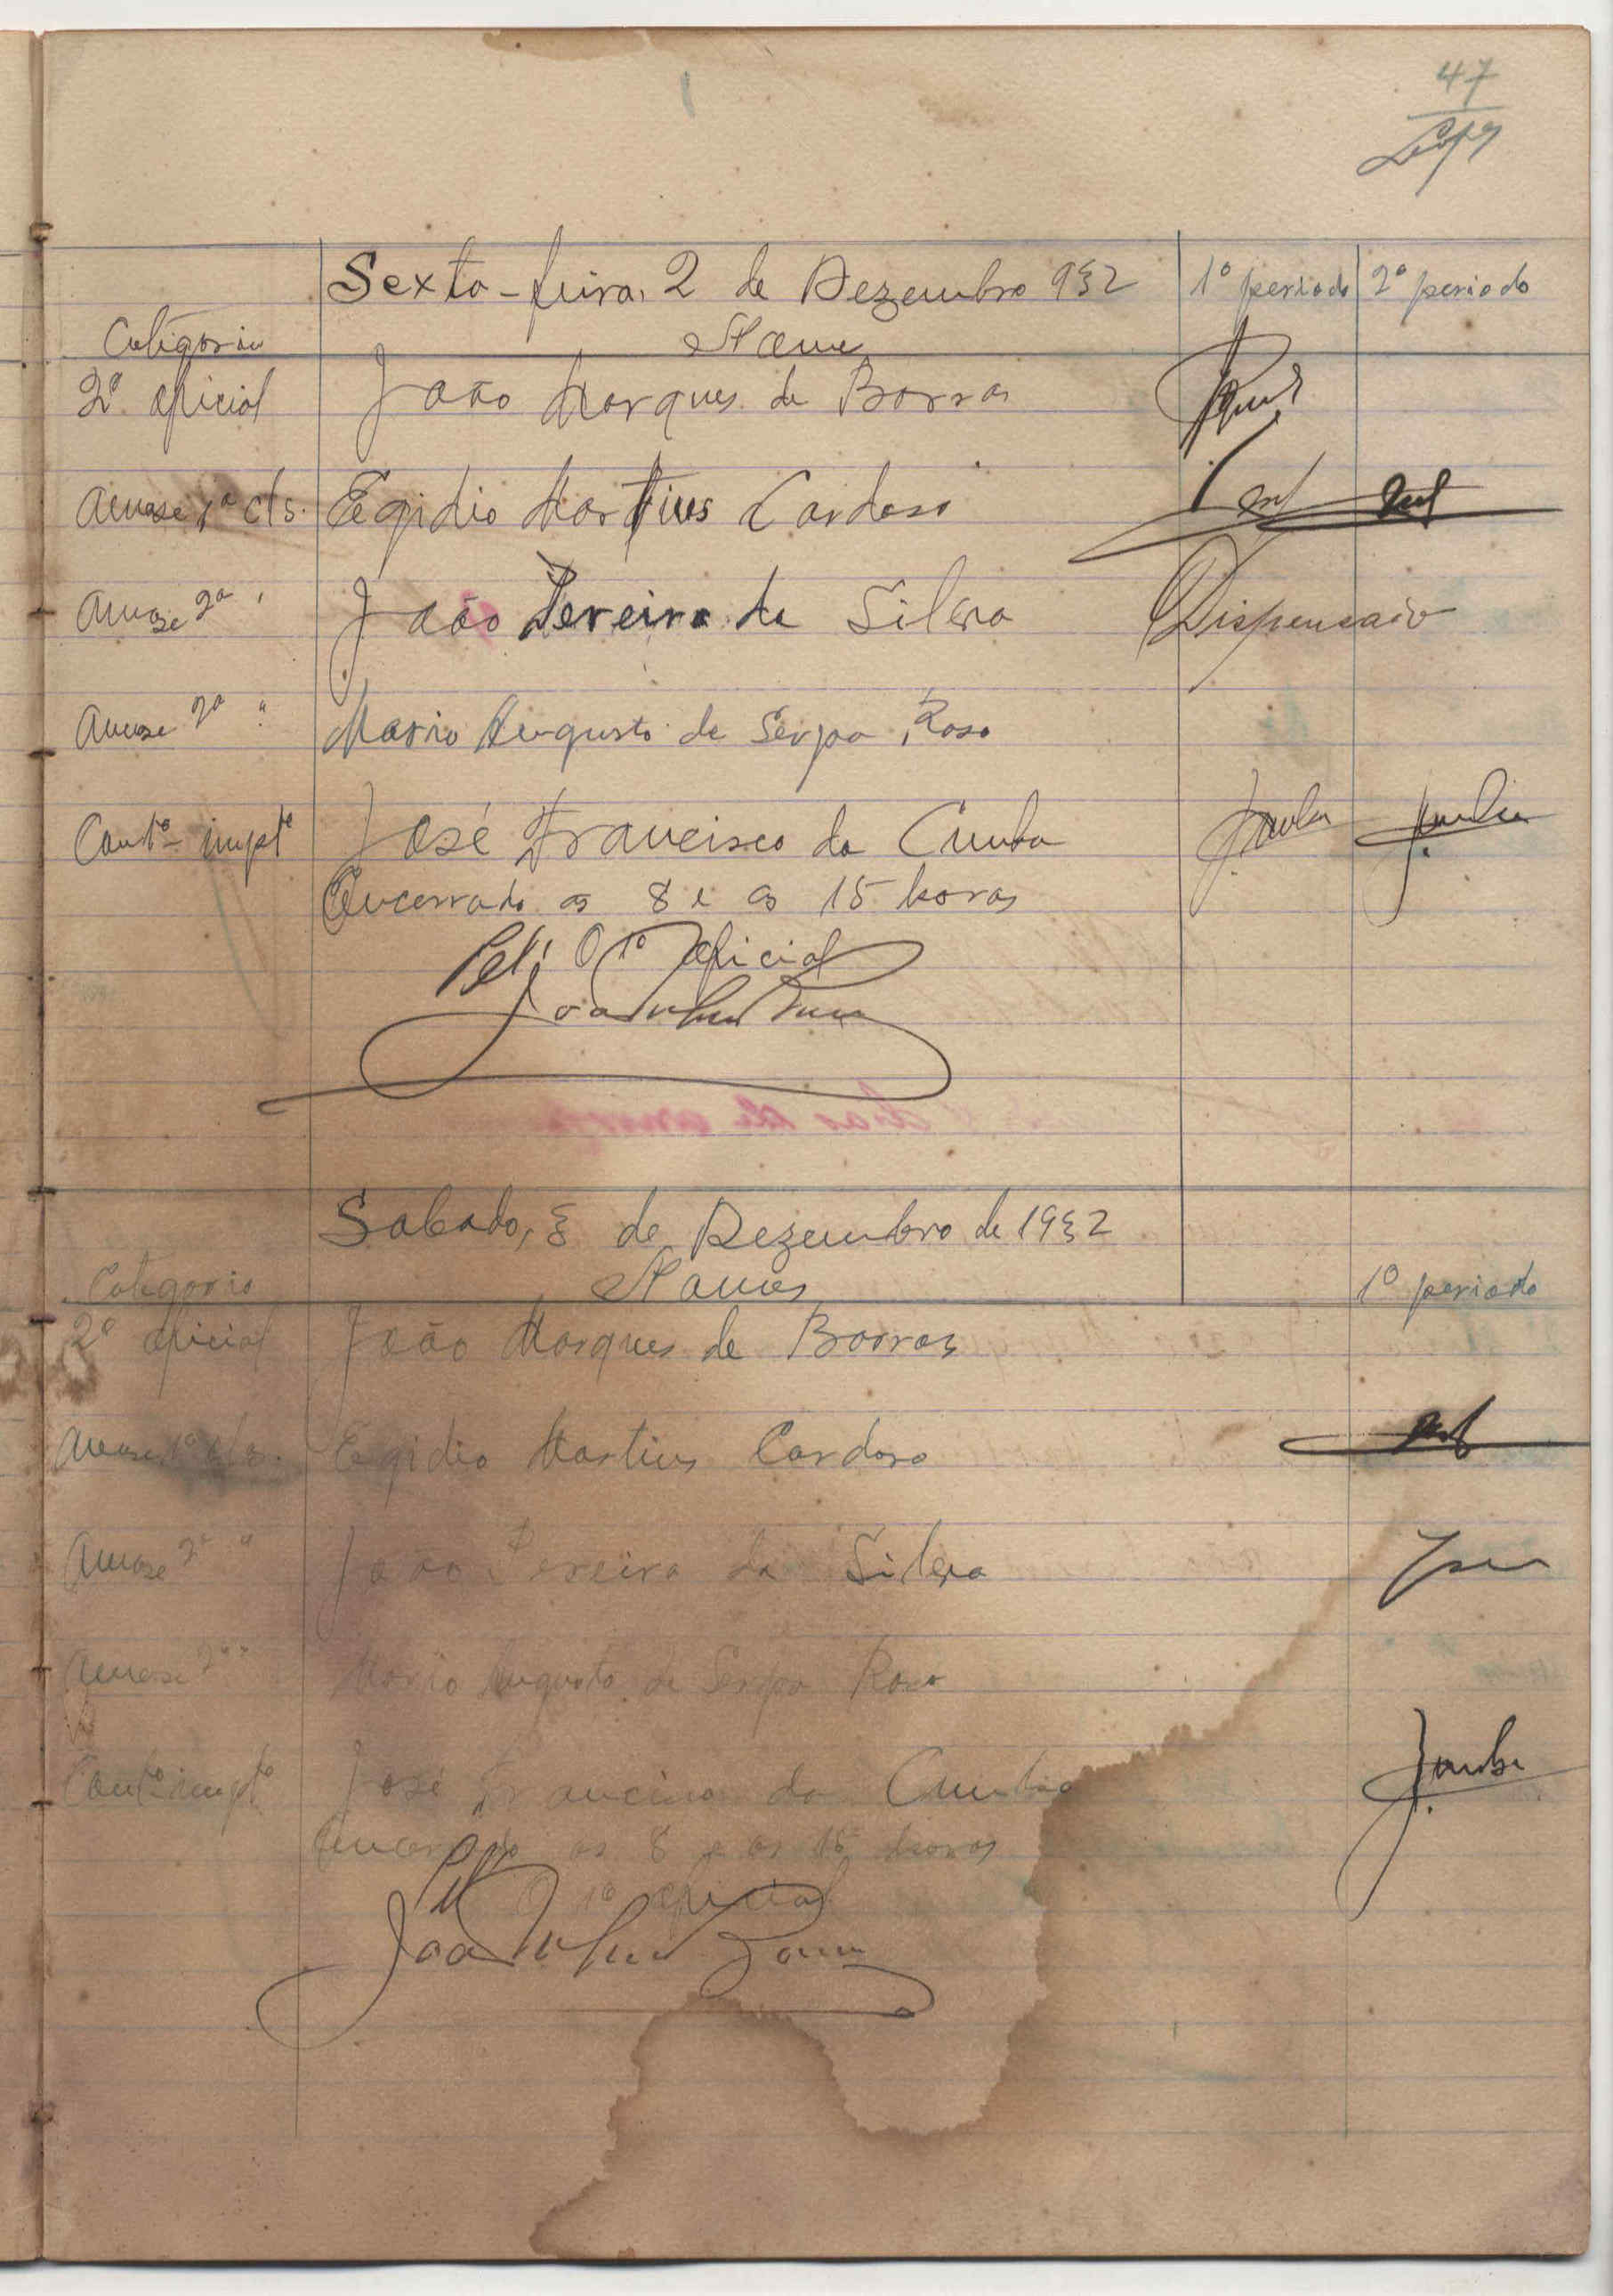 47
Sexta-feira, 2 de Dezembro 932 1º periodo 2º periodo
Categoria Nome
2º oficial João Marques de Barros
Amase 1ª cls. Egidio Martins Cardoso
Amase 2ª " João Pereira da Silva Dispensado
Amase 2ª " Mario Augusto de Serpa Rosa
Contº impto José Francisco da Cunha JCunha JCunha
Encerrado as 8 e as 15 horas
Pel' O 1º Oficial
Sabado, 3 de Dezembro de 1932
Categoria Nomes 1º periodo
2º oficial João Marques de Barros
Amase 1ª cls. Egidio Martins Cardoso
Amase 2ª " João Pereira da Silva
Amase 2ª " Mario Augusto de Serpa Rosa
Contº impto José Francisco da Cunha JCunha
Encerrado as 8 e as 15 horas
Pel' O 1º Oficial